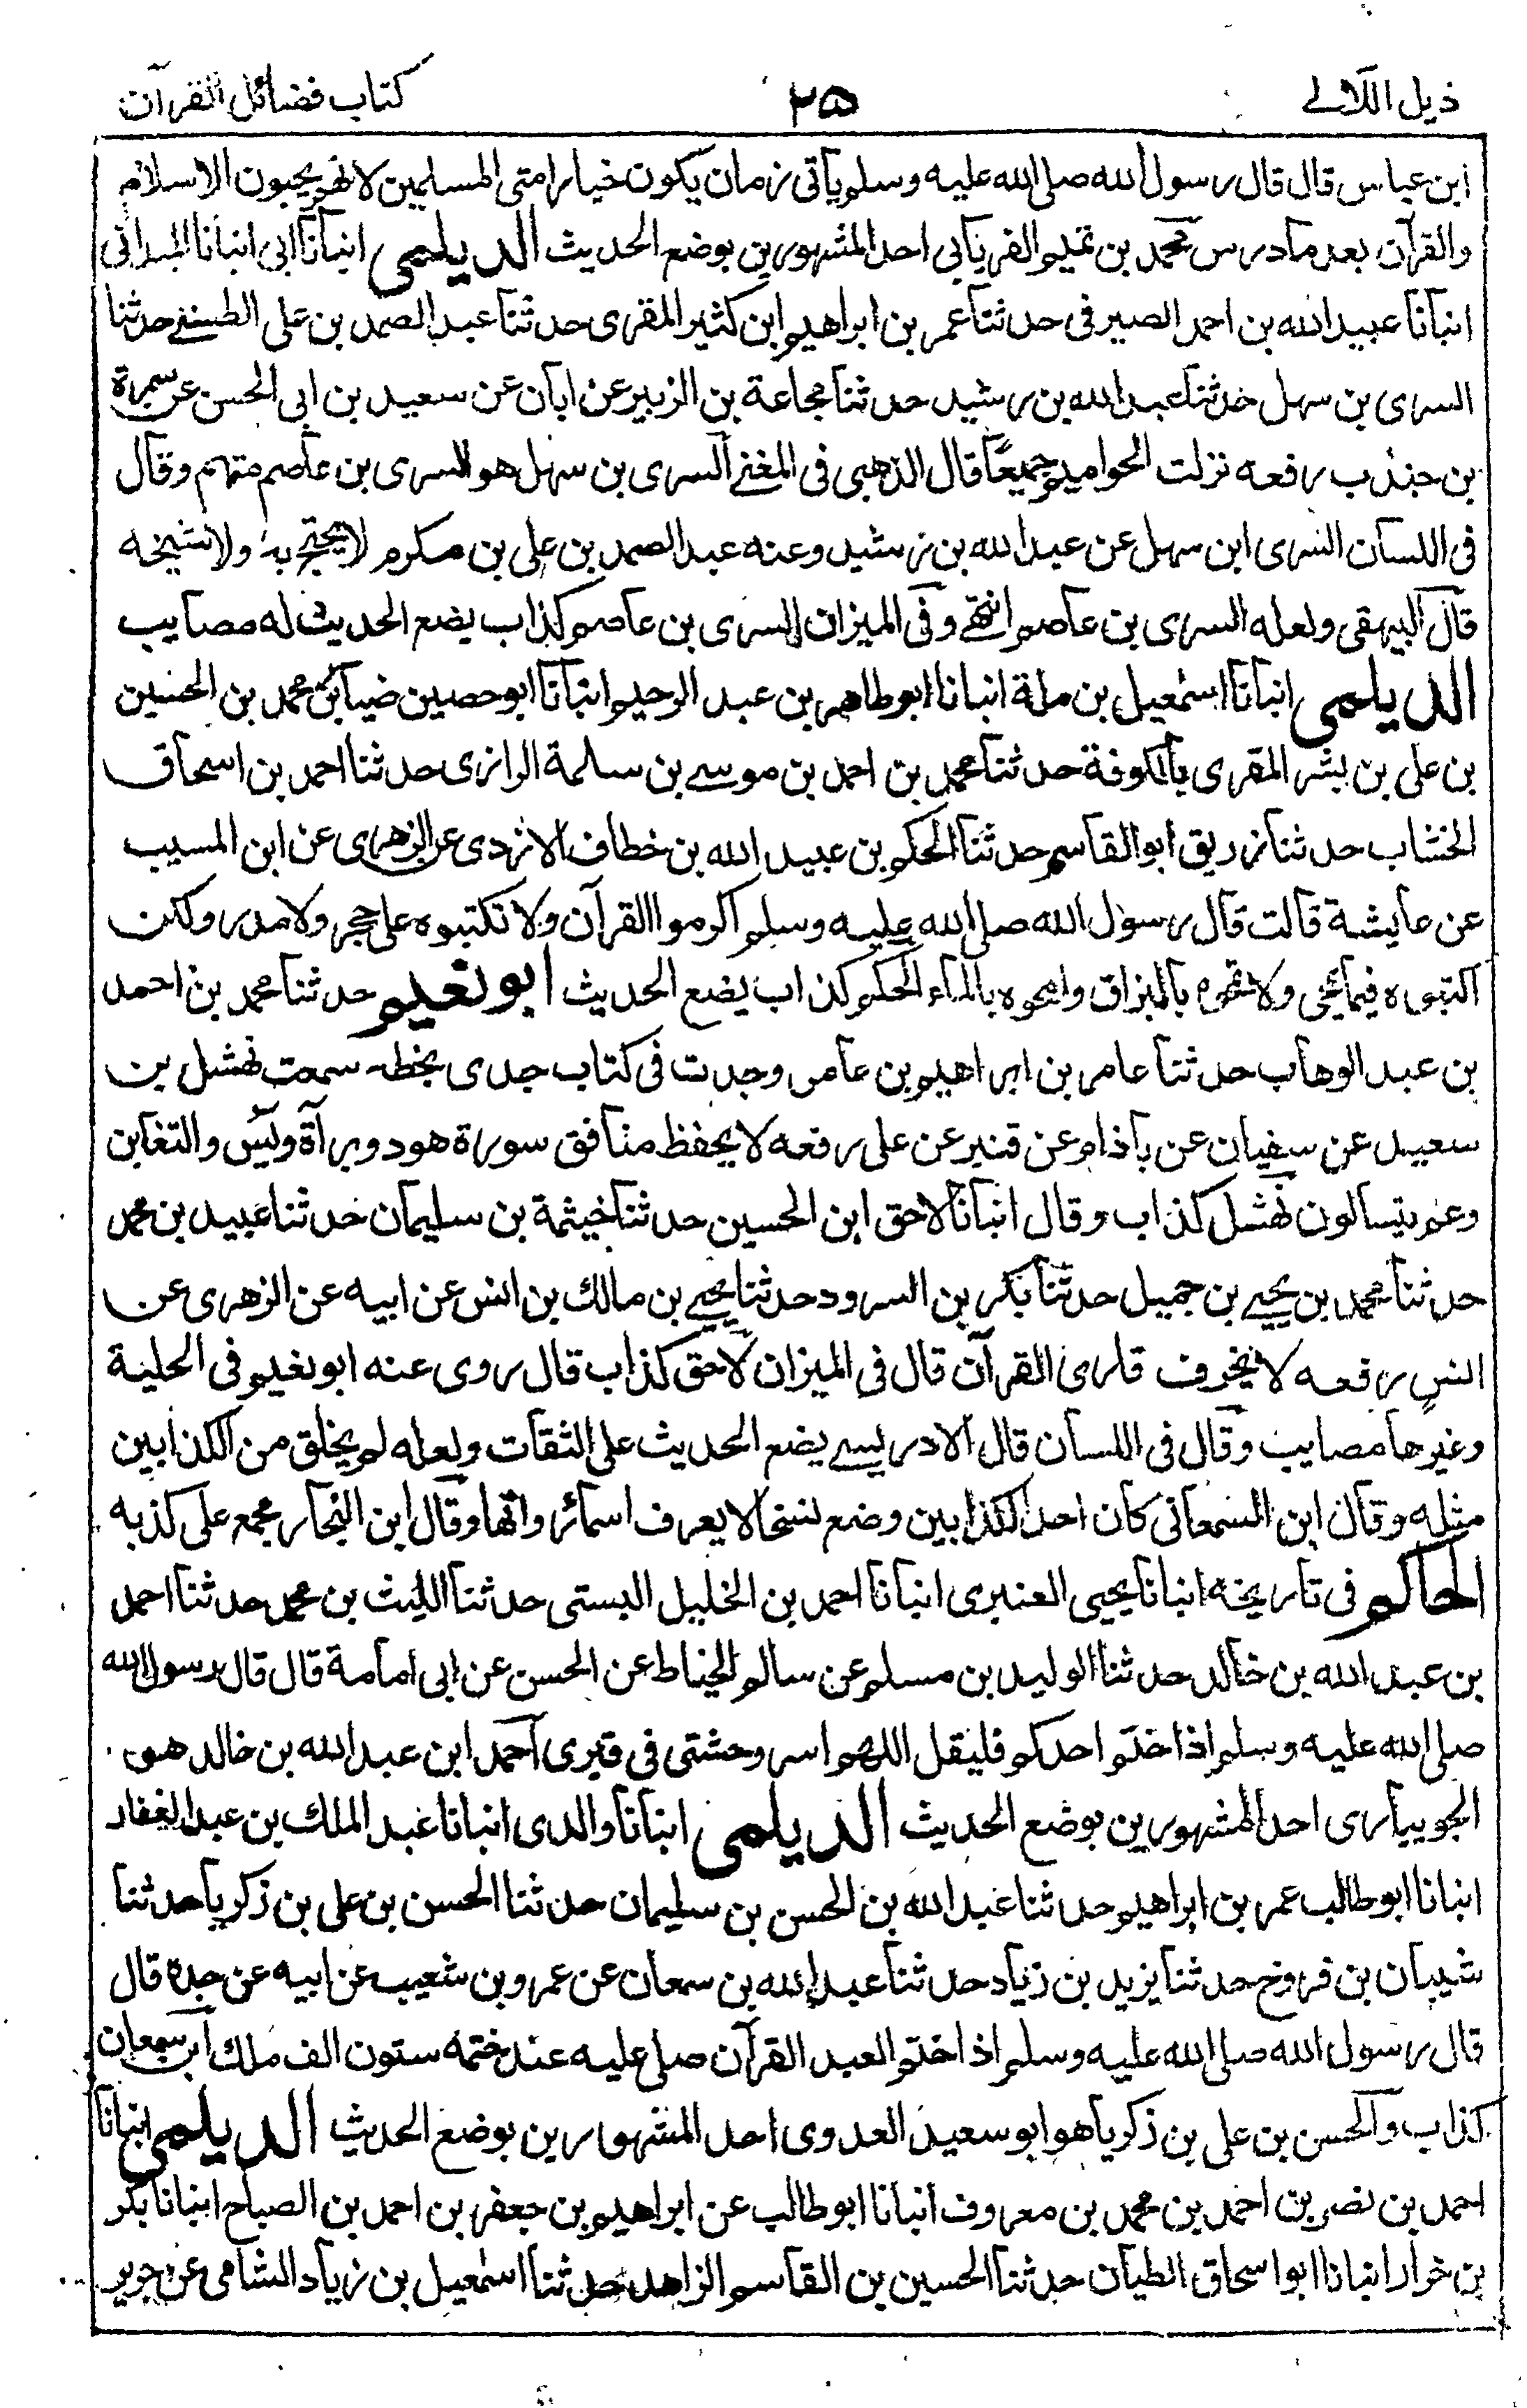 ذيل اللآلے
٢٥
كتاب فضائل القرآن
ابن عباس قال قال رسول الله صلى الله عليه وسلم يأتى زمان يكون خيار امتى المسلمين لانهم يحبون الاسلام
والقرآن بعد مادرس محمد بن تميم الفريابي احد المشهورين بوضع الحديث الديلمى انبأنا ابى انبانا الميدانى
انبأنا عبيد الله بن احمد الصيرفى حدثنا عمر بن ابراهيم ابن كثير المقرى حدثنا عبد الصمد بن على الطستے حدثنا
السرى بن سهل حدثنا عبد الله بن رشيد حدثنا مجاعة بن الزبير عن ابان عن سعيد بن ابى الحسن عن سمرة
بن جندب رفعه نزلت الحواميم جميعًا قال الذهبى فى المغنے السرى بن سهل هو السرى بن عاصم متهم وقال
فى اللسان السرى ابن سهل عن عبد الله بن رشيد وعنه عبد الصمد بن على بن مكرم لا يحتج به ولا شيخه
قال البيهقى ولعله السرى بن عاصم انتهے وفى الميزان السرى بن عاصم كذاب يضع الحديث له مصايب
الديلمى انبأنا اسمٰعيل بن ملة انبانا ابو طاهر بن عبد الرحيم انبأنا ابو حصين ضياء بن محمد بن الحسين
بن على بن بشر المقرى بالكوفة حدثنا محمد بن احمد بن موسے بن سلمة الرازى حدثنا احمد بن اسحاق
الخشاب حدثنا زريق ابو القاسم حدثنا الحكم بن عبيد الله بن خطاف الازدى عن الزهرى عن ابن المسيب
عن عايشة قالت قال رسول الله صلى الله عليه وسلم اكرموا القرآن ولا تكتبوه على حجر ولا مدر ولكن
اكتبوه فيما يمحى ولا تمحوه بالبزاق وامحوه بالماء الحكم كذاب يضع الحديث ابو نعيم حدثنا محمد بن احمد
بن عبد الوهاب حدثنا عامر بن ابراهيم بن عامر وجدت فى كتاب جدى بخطه سمعت نهشل بن
سعيد عن سفيان عن باذام عن قنبر عن على رفعه لا يحفظ منافق سورة هود وبرآة ويٰسٓ والتغابن
وعم يتسالون نهشل كذاب وقال انبأنا لاحق ابن الحسين حدثنا خيثمة بن سليمان حدثنا عبيد بن محمد
حدثنا محمد بن يحيے بن جميل حدثنا بكر بن السرود حدثنا يحيے بن مالك بن انس عن ابيه عن الزهرى عن
انس رفعه لا يخرف قارى القرآن قال فى الميزان لاحق كذاب قال روى عنه ابو نعيم فى الحلية
وغيرها مصايب وقال فى اللسان قال الادريسے يضع الحديث على الثقات ولعله لم يخلق من الكذابين
مثله وقال ابن السمعانى كان احد الكذابين وضع نسخا لا يعرف اسمائر واتها وقال ابن النجار مجمع على كذبه
الحاكم فى تاريخه انبانا يحيى العنبرى انبانا احمد بن الخليل البستى حدثنا الليث بن محمد حدثنا احمد
بن عبد الله بن خالد حدثنا الوليد بن مسلم عن سالم الخياط عن الحسن عن ابى امامة قال قال رسول الله
صلى الله عليه وسلم اذا ختم احدكم فليقل اللهم انس وحشتى فى قبرى احمد ابن عبد الله بن خالد هو
الجويبارى احد المشهورين بوضع الحديث الديلمى انبانا والدى انبانا عبد الملك بن عبد الغفار
انبانا ابو طالب عمر بن ابراهيم حدثنا عبد الله بن الحسن بن سليمان حدثنا الحسن بن على بن زكريا حدثنا
شيبان بن فروخ حدثنا يزيد بن زياد حدثنا عبد الله بن سمعان عن عمرو بن شعيب عن ابيه عن جده قال
قال رسول الله صلى الله عليه وسلم اذا ختم العبد القرآن صلى عليه عند ختمه ستون الف ملك ابن سمعان
كذاب والحسن بن على بن زكريا هو ابو سعيد العدوى احد المشهورين بوضع الحديث الديلمى انبانا
احمد بن نصر بن احمد بن محمد بن معروف انبانا ابو طالب عن ابراهيم بن جعفر بن احمد بن الصباح انبانا بكر
بن خوار انبانا ابو اسحاق الطيان حدثنا الحسين بن القاسم الزاهد حدثنا اسمٰعيل بن زياد الشامى عن جوير